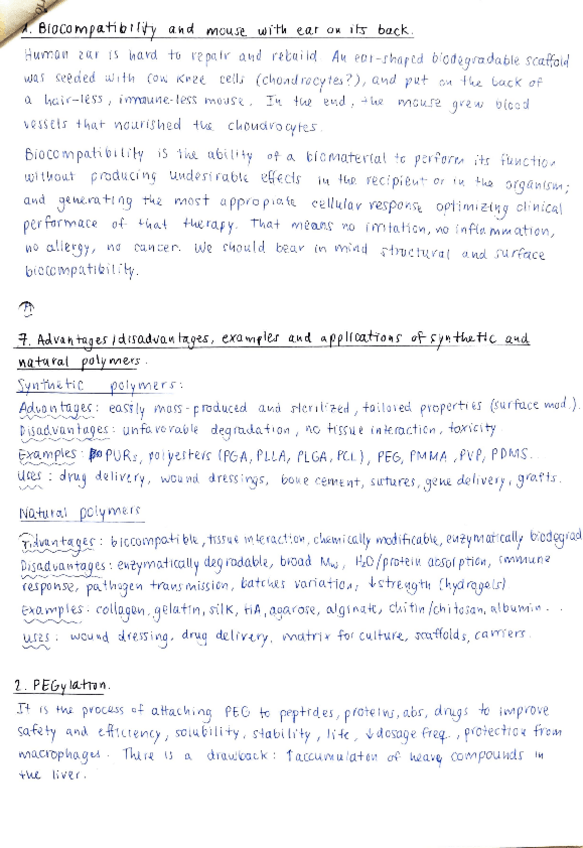 1. Biocompatibility and mouse with ear on its back.
Human ear is hard to repair and rebuild An ear-shaped biodegradable scaffold
was seeded with cow knee cells (chondrocytes?), and put on the back of
a hair-less, immune-less mouse. In the end, the mouse grew blood
vessels that nourished the chondrocytes.
Biocompatibility is the ability of a biomaterial to perform its function
without producing undesirable effects in the recipient or in the organism;
and generating the most appropiate cellular response optimizing clinical
performace of that therapy. That means no irritation, no inflammation,
no allergy, no cancer. We should bear in mind structural and surface
biocompatibility.
7. Advantages/disadvantages, examples and applications of synthetic and
natural polymers.
Synthetic polymers:
Advantages: easily mass-produced and sterilized, tailored properties (surface mod.).
Disadvantages: unfavorable degradation, no tissue interaction, toxicity
Examples: PURs, polyesters (PGA, PLLA, PLGA, PCL), PEG, PMMA, PVP, PDMS..
Uses: drug delivery, wound dressings, bone cement, sutures, gene delivery, grafts.
Natural polymers
Advantages: biocompatible, tissue interaction, chemically modificable, enzymatically biodegrad
Disadvantages: enzymatically degradable, broad Mw, H2O/protein absorption, immune
response, pathogen transmission, batches variation, ↓strength (hydrogels)
Examples: collagen, gelatin, silk, HA, agarose, alginate, chitin/chitosan, albumin...
Uses: wound dressing, drug delivery, matrix for culture, scaffolds, carriers.
2. PEGylation.
It is the process of attaching PEG to peptides, proteins, abs, drugs to improve
safety and efficiency, solubility, stability, life, ↓dosage freq., protection from
macrophages. There is a drawback: ↑accumulaton of heavy compounds in
the liver.